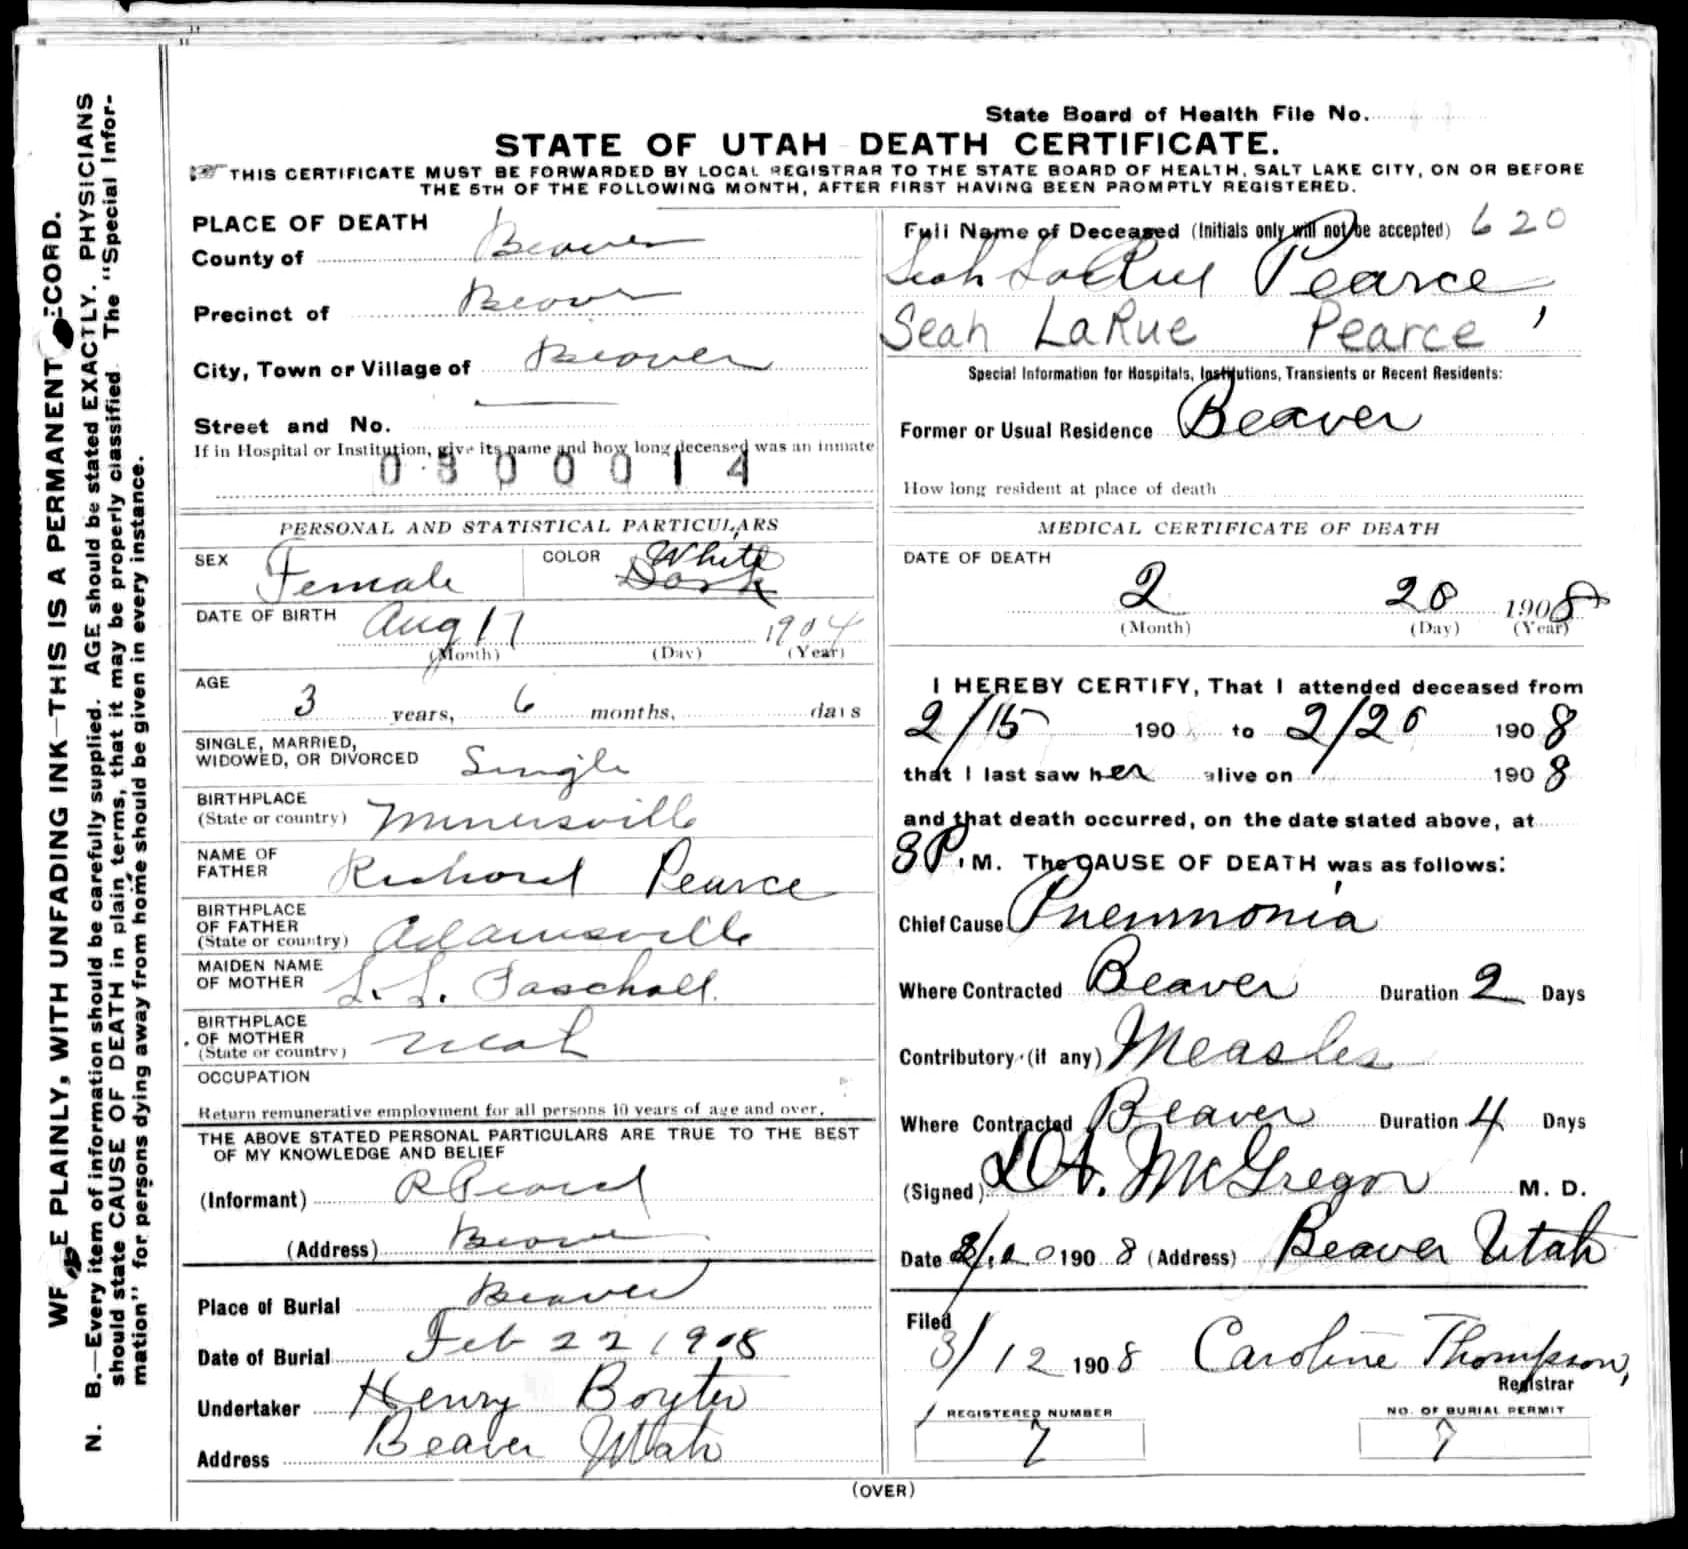 State Board of Health File No.
STATE OF UTAH DEATH CERTIFICATE.
THIS CERTIFICATE MUST BE FORWARDED BY LOCAL REGISTRAR TO THE STATE BOARD OF HEALTH, SALT LAKE CITY, ON OR BEFORE
THE 5TH OF THE FOLLOWING MONTH, AFTER FIRST HAVING BEEN PROMPTLY REGISTERED.
PLACE OF DEATH
County of Beaver
Precinct of Beaver
City, Town or Village of Beaver
Street and No.
If in Hospital or Institution, give its name and how long deceased was an inmate
0800014
PERSONAL AND STATISTICAL PARTICULARS
SEX Female COLOR White Dark
DATE OF BIRTH Aug 17 1904
(Month) (Day) (Year)
AGE 3 years, 6 months, days
SINGLE, MARRIED,
WIDOWED, OR DIVORCED Single
BIRTHPLACE
(State or country) Minersville
NAME OF
FATHER Richard Pearce
BIRTHPLACE
OF FATHER
(State or country) Adamsville
MAIDEN NAME
OF MOTHER L. L. Paschall
BIRTHPLACE
OF MOTHER
(State or country) Utah
OCCUPATION
Return remunerative employment for all persons 10 years of age and over.
THE ABOVE STATED PERSONAL PARTICULARS ARE TRUE TO THE BEST
OF MY KNOWLEDGE AND BELIEF
(Informant) R Pearce
(Address) Beaver
Place of Burial Beaver
Date of Burial Feb 22 1908
Undertaker Henry Boyter
Address Beaver Utah
Full Name of Deceased (Initials only will not be accepted) 620
Leah LaRue Pearce
Seah LaRue Pearce
Special Information for Hospitals, Institutions, Transients or Recent Residents:
Former or Usual Residence Beaver
How long resident at place of death
MEDICAL CERTIFICATE OF DEATH
DATE OF DEATH
2 20 1908
(Month) (Day) (Year)
I HEREBY CERTIFY, That I attended deceased from
2/15 190 to 2/20 1908
that I last saw her alive on 1908
and that death occurred, on the date stated above, at
8P.M. The CAUSE OF DEATH was as follows:
Chief Cause Pneumonia
Where Contracted Beaver Duration 2 Days
Contributory (if any) Measles
Where Contracted Beaver Duration 4 Days
(Signed) McGregor M. D.
Date 1908 (Address) Beaver Utah
Filed
3/12 1908 Caroline Thompson,
Registrar
REGISTERED NUMBER
7
NO. OF BURIAL PERMIT
7
(OVER)
WRITE PLAINLY, WITH UNFADING INK—THIS IS A PERMANENT RECORD.
N. B.—Every item of information should be carefully supplied. AGE should be stated EXACTLY. PHYSICIANS
should state CAUSE OF DEATH in plain terms, that it may be properly classified. The "Special Infor-
mation" for persons dying away from home should be given in every instance.